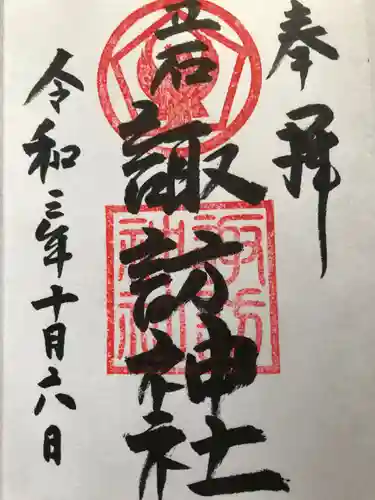 奉拝
立石諏訪神社
諏訪
神社
令和三年十月六日